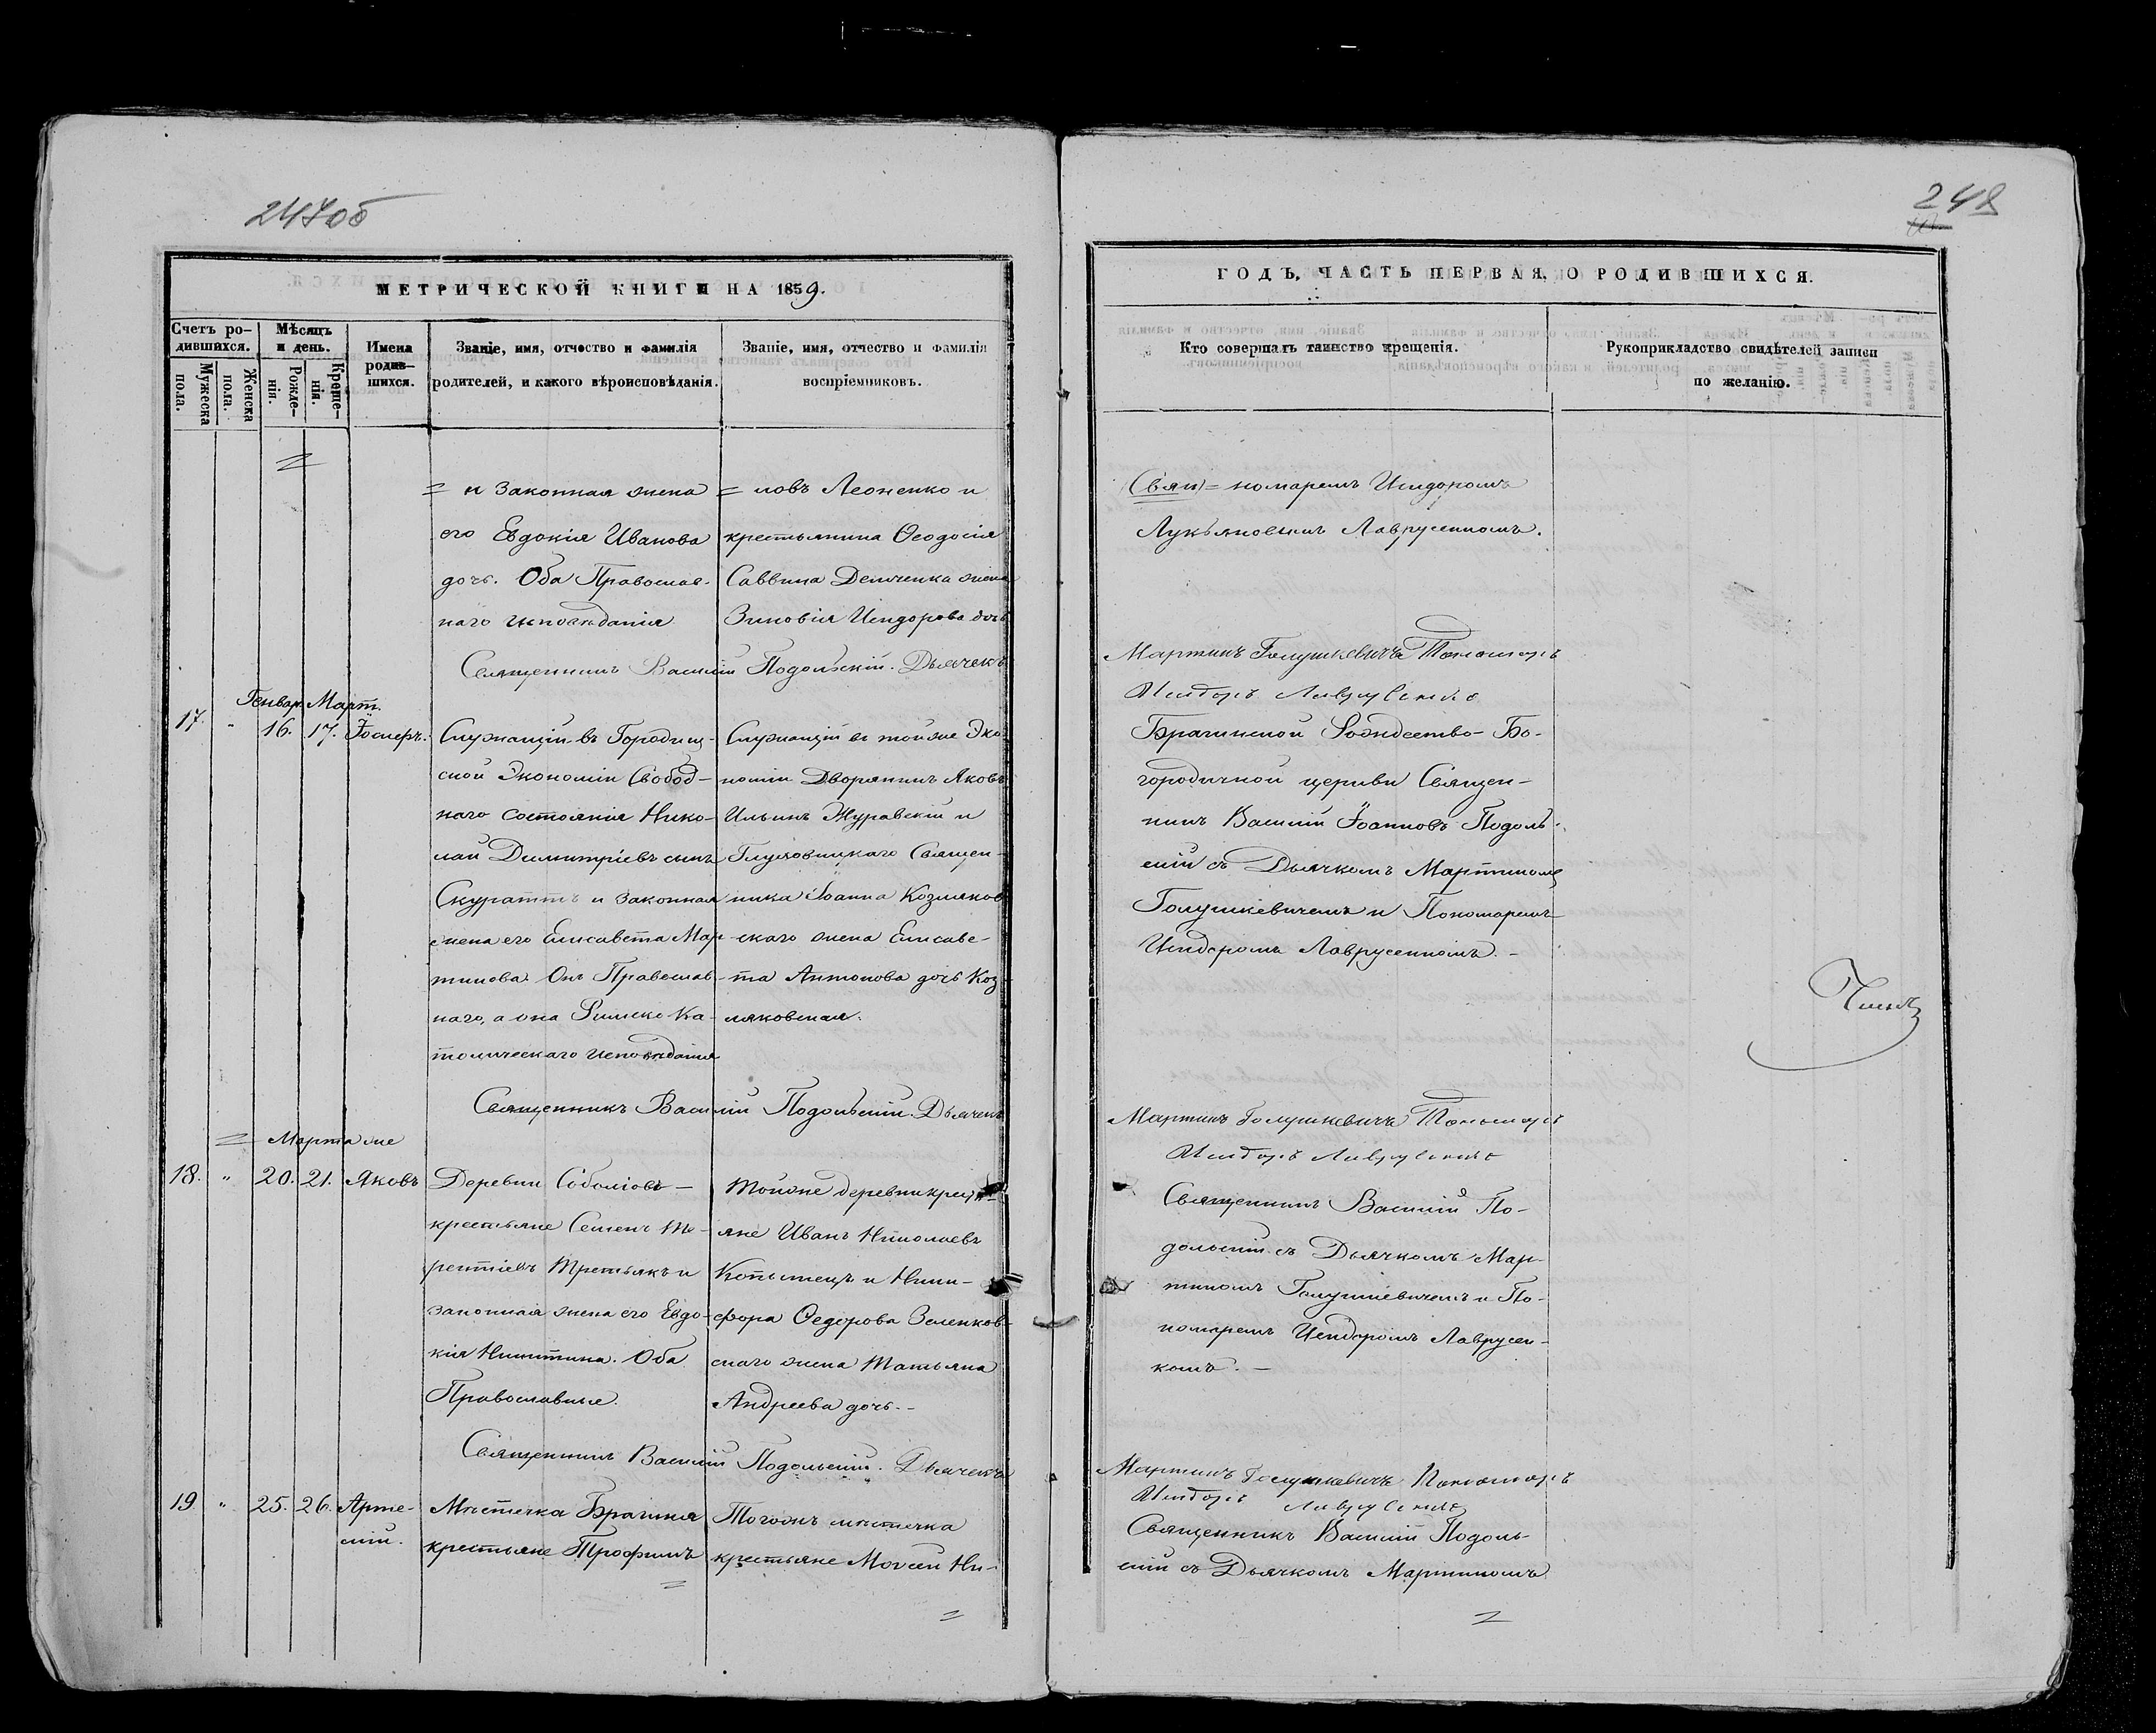 247об
МЕТРИЧЕСКОЙ КНИГИ НА 1859.
Счетъ ро-
дившихся.
Мужеска
пола.
Женска
пола.
Мѣсяцъ
и день.
Рожде-
нія.
Креще-
нія.
Имена
родив-
шихся.
Званіе, имя, отчество и фамилія
родителей, и какого вѣроисповѣданія.
Званіе, имя, отчество и фамилія
воспріемниковъ.
= и законная жена
его Евдокія Иванова
дочь. Оба Православ-
наго исповѣданія
= ловъ Леоненко и
крестьянина Ѳеодосія
Саввина Демченка жена
Зиновія Исидорова дочь
Священникъ Василій Подольскій. Дьячекъ
Генвар. Март.
17. " 16. 17.
Служащій въ Городищ-
ской Экономіи Свобод-
наго состоянія Нико-
лай Димитріевъ сынъ
Скураттъ и законная
жена его Елисавета Мар-
тинова. Онъ Православ-
наго, а она Римско Ка-
толическаго исповѣданія
Служащій въ тойже Эко-
номіи Дворянинъ Яковъ
Ильинъ Журавскій и
Глуховицкаго Священ-
ника Іоанна Козляков-
скаго жена Елисаве-
та Антонова дочь Коз-
ляковская.
Священникъ Василій Подольскій. Дьячекъ
= Марта же
18. " 20. 21. Яковъ
Деревни Соболіовъ —
крестьяне Семенъ Те-
рентіевъ Третьякъ и
законная жена его Евдо-
кія Никитина. Оба
Православные.
Тойже деревни крестья-
яне Иванъ Николаевъ
Копытецъ и Ники-
фора Ѳедорова Зеленков-
скаго жена Татьяна
Андреева дочь. -
Священникъ Василій Подольскій. Дьячекъ
19 " 25. 26. Арте-
мій.
Мѣстечка Брагина
крестьяне Трофимъ
=
Тогожъ мѣстечка
крестьяне Моѵсей Ни-
=
248
ГОДЪ, ЧАСТЬ ПЕРВАЯ, О РОДИВШИХСЯ.
Кто совершалъ таинство крещенія.
Рукоприкладство свидѣтелей записи
по желанію.
= номаремъ Исидоромъ
Лукьяновымъ Лаврусенкомъ.
Мартинъ Голушкевичъ Пономарь
Исидоръ Лаврусенко
Брагинской Рождество-Бо-
городичной церкви Священ-
никъ Василій Іоанновъ Подоль-
скій съ Дьячкомъ Мартиномъ
Голушкевичемъ и Пономаремъ
Исидоромъ Лаврусенкомъ. -
Мартинъ Голушкевичъ Пономарь
Исидоръ Лаврусенко
Священникъ Василій По-
дольскій съ Дьячкомъ Мар-
тиномъ Голушкевичемъ и По-
номаремъ Исидоромъ Лаврусен-
комъ. —
Мартинъ Голушкевичъ Пономарь
Исидоръ Лаврусенко
Священникъ Василій Подоль-
скій съ Дьячкомъ Мартиномъ
=